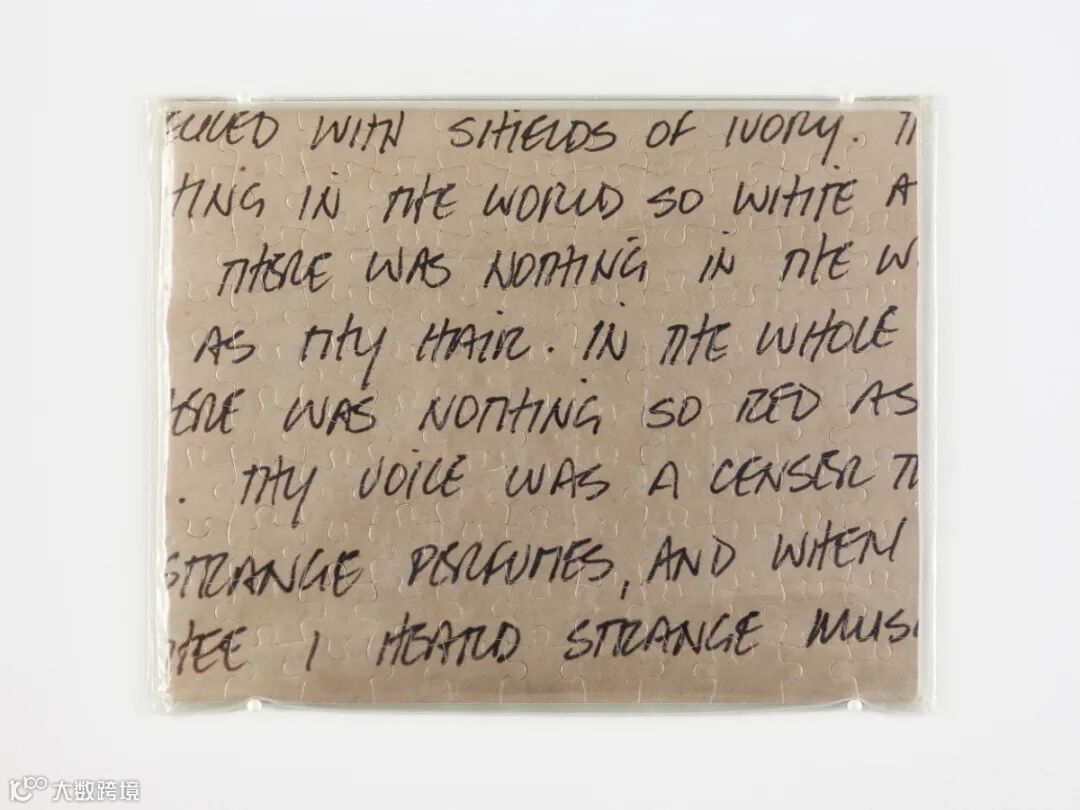 ECKED WITH SHIELDS OF IVORY. TH
THING IN THE WORLD SO WHITE A
THERE WAS NOTHING IN THE W
AS THY HAIR. IN THE WHOLE
HERE WAS NOTHING SO RED AS
. THY VOICE WAS A CENSER TH
STRANGE PERFUMES, AND WHEN
THEE I HEARD STRANGE MUSI
大数跨境